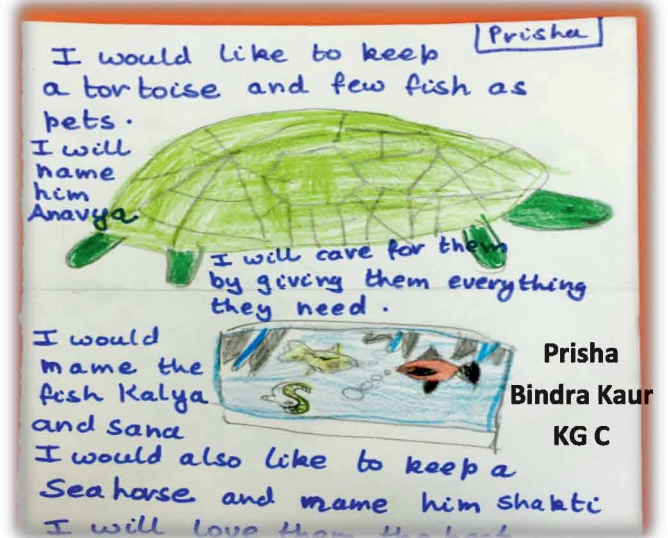 Prisha
I would like to keep
a tortoise and few fish as
pets.
I will
name
him
Anavya
I will care for them
by giving them everything
they need.
I would
mame the
fish Kalya
and sana
Prisha
Bindra Kaur
KG C
I would also like to keep a
Sea horse and mame him Shakti
I will love them the best.